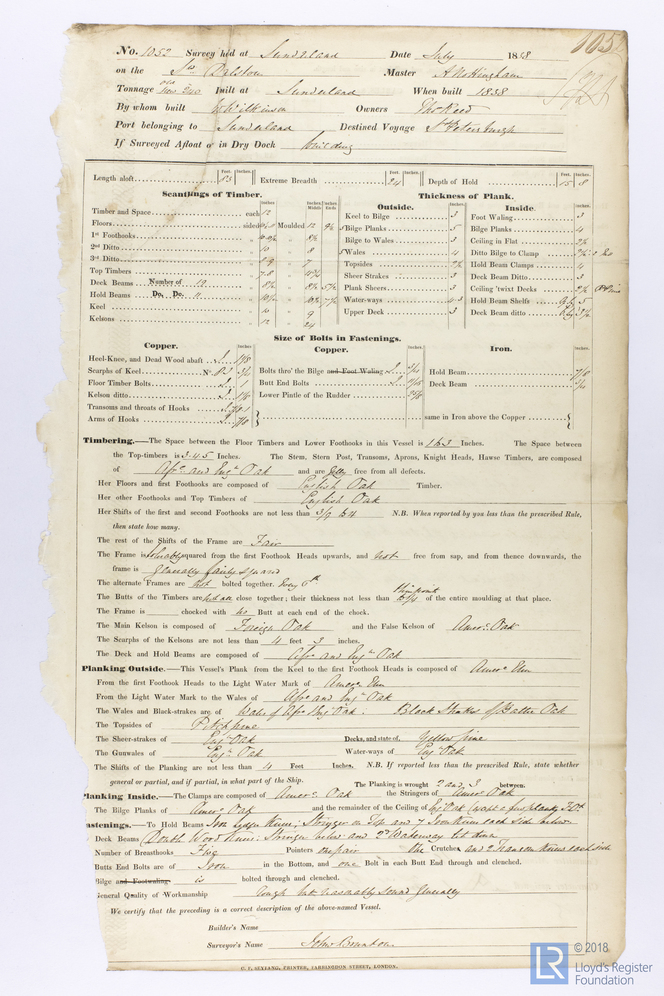 No. 1052 Survey held at Sunderland Date July 1838
1052
on the Dalston Master A Nottingham
Tonnage 240 Built at Sunderland When built 1838
By whom built W Wilkinson Owners Thos Reed
Port belonging to Sunderland Destined Voyage St Petersburgh
If Surveyed Afloat or in Dry Dock building
Length aloft Feet. Inches. Extreme Breadth Feet. Inches. 24 Depth of Hold Feet. Inches. 15 8
Scantlings of Timber.
Inches. Inches. Middle Inches. Ends
Timber and Space each 12
Floors sided Moulded 12 9½
1st Foothooks " " 8½
2nd Ditto " 10 " 8
3rd Ditto " 8 9 " 7
Top Timbers " 7.8 "
Deck Beams Number of 19 "
Hold Beams Do. Do. 11 "
Keel " 10 " 9
Kelsons " 12 " 24
Thickness of Plank.
Outside. Inches.
Keel to Bilge 3
Bilge Planks 5
Bilge to Wales 3
Wales 4
Topsides 2½
Sheer Strakes 3
Plank Sheers 3
Water-ways 4 3
Upper Deck 3
Inside. Inches.
Foot Waling 3
Bilge Planks 4
Ceiling in Flat 2½
Ditto Bilge to Clamp 2½
Hold Beam Clamps 4
Deck Beam Ditto 3
Ceiling 'twixt Decks 2½
Hold Beam Shelfs 5
Deck Beam ditto
Size of Bolts in Fastenings.
Copper. Inches.
Heel-Knee, and Dead Wood abaft 1⅛
Scarphs of Keel No. 8
Floor Timber Bolts 1
Kelson ditto
Transoms and throats of Hooks
Arms of Hooks 7/8
Copper. Inches.
Bolts thro' the Bilge and Foot Waling
Butt End Bolts
Lower Pintle of the Rudder
Iron. Inches.
Hold Beam 7/8
Deck Beam
same in Iron above the Copper
Timbering.—The Space between the Floor Timbers and Lower Foothooks in this Vessel is 1 to 3 Inches. The Space between
the Top-timbers is 3.4.5 Inches. The Stem, Stern Post, Transoms, Aprons, Knight Heads, Hawse Timbers, are composed
of Afrn and Engh Oak and are free from all defects.
Her Floors and first Foothooks are composed of English Oak Timber.
Her other Foothooks and Top Timbers of English Oak
Her Shifts of the first and second Foothooks are not less than 3/9 to 4 N.B. When reported by you less than the prescribed Rule,
then state how many.
The rest of the Shifts of the Frame are Fair
The Frame is squared from the first Foothook Heads upwards, and not free from sap, and from thence downwards, the
frame is generally fairly squared
The alternate Frames are not bolted together. Every 6th
The Butts of the Timbers are close together; their thickness not less than of the entire moulding at that place.
The Frame is chocked with no Butt at each end of the chock.
The Main Kelson is composed of Foreign Oak and the False Kelson of Amern Oak
The Scarphs of the Kelsons are not less than 4 feet 3 inches.
The Deck and Hold Beams are composed of Afrn and Engh Oak
Planking Outside.—This Vessel's Plank from the Keel to the first Foothook Heads is composed of Amern Elm
From the first Foothook Heads to the Light Water Mark of Amern Elm
From the Light Water Mark to the Wales of Afrn and Engh Oak
The Wales and Black-strakes are of Wales of Afrn & Engh Oak. Black Strakes of Baltic Oak
The Topsides of Pitch pine
The Sheer-strakes of Engh Oak Decks, and state of, Yellow Pine
The Gunwales of Engh Oak Water-ways of Engh Oak
The Shifts of the Planking are not less than 4 Feet Inches. N.B. If reported less than the prescribed Rule, state whether
general or partial, and if partial, in what part of the Ship. The Planking is wrought 2 and 3 between.
Planking Inside.—The Clamps are composed of Amern Oak the Stringers of Amern Oak
The Bilge Planks of Amern Oak and the remainder of the Ceiling of Engh Oak
Fastenings.—To Hold Beams Iron Knees: Stringer on Top and 7 Iron Knees each side below
Deck Beams Double Wood Knees Stringer below and 2nd Waterway
Number of Breasthooks Five Pointers one pair Crutches and 2 Transom Knees each side
Butts End Bolts are of Iron in the Bottom, and one Bolt in each Butt End through and clenched.
Bilge and Footwaling is bolted through and clenched.
General Quality of Workmanship rough but reasonably sound generally
We certify that the preceding is a correct description of the above-named Vessel.
Builder's Name
Surveyor's Name John Brunton
C. F. SEYFANG, PRINTER, FARRINGDON STREET, LONDON.
LR © 2018
Lloyd's Register
Foundation